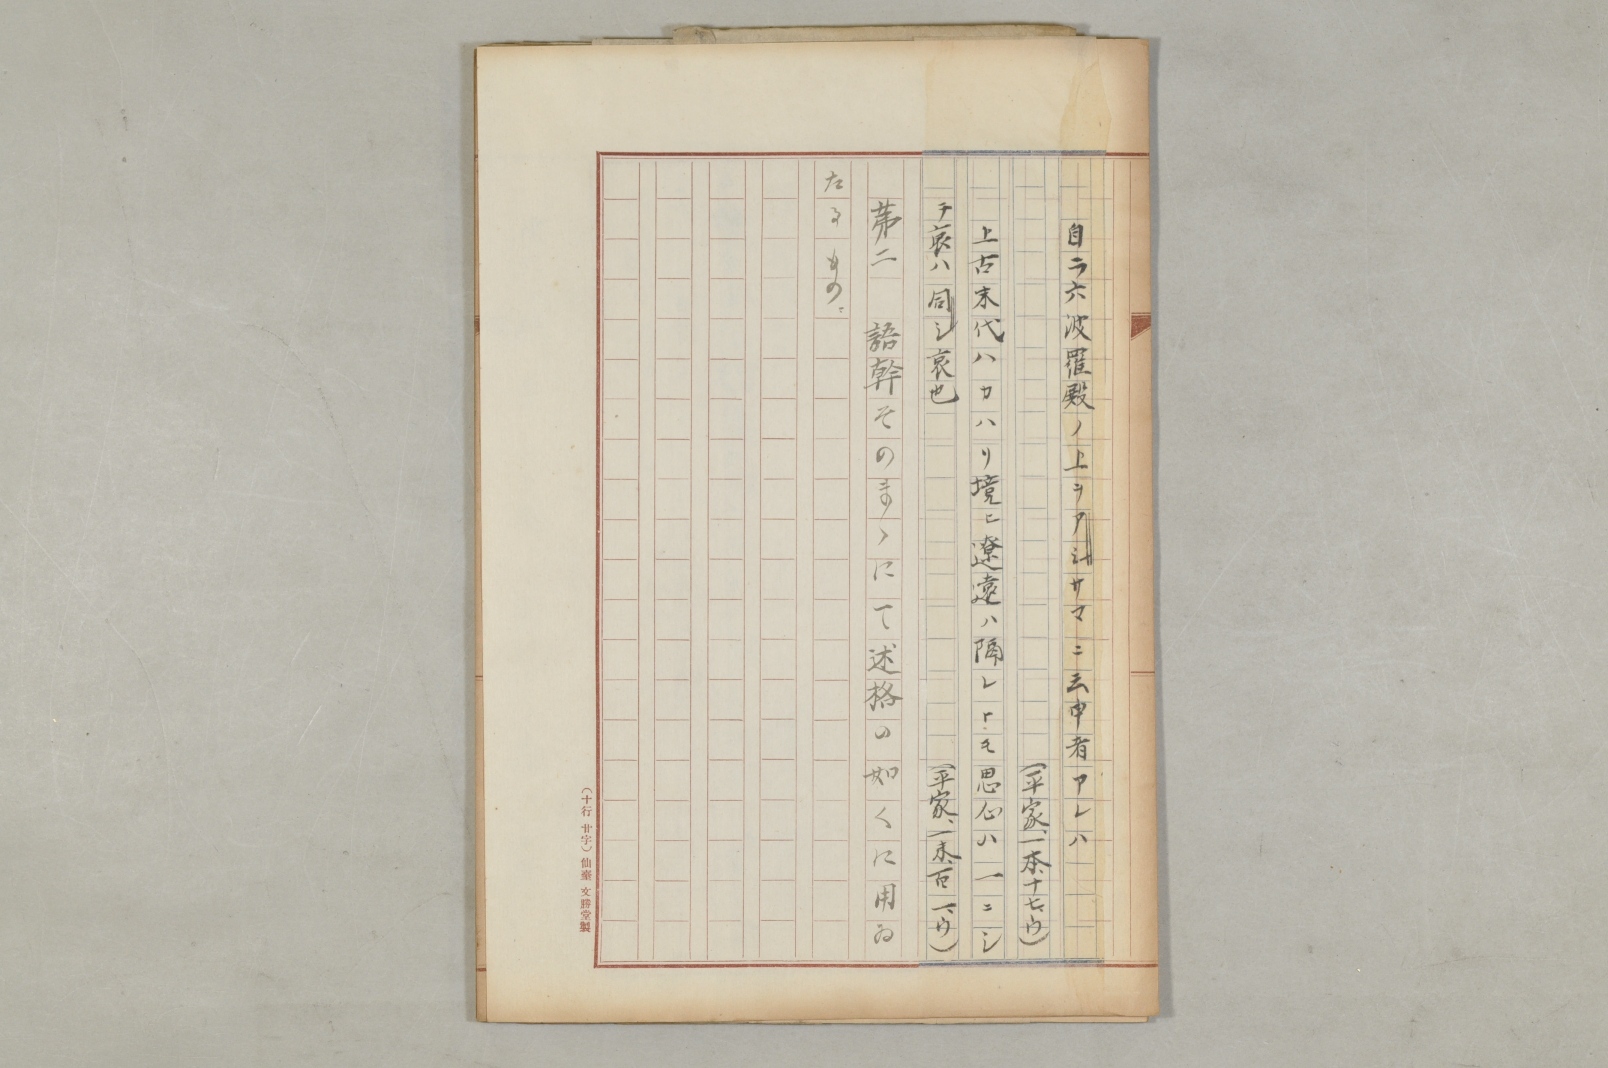 自ラ六波羅殿ノ上ヲアシサマニ云申者アレハ
(平家、一本、十七ウ)
上古末代ハカハリ境ヒ遼遠ハ隔レトモ思心ハ一ニシ
テ哀ハ同シ哀也
(平家、一末、百一ウ)
第二 語幹そのまゝにて述格の如くに用ゐ
たるもの。
(十行廿字)仙臺 文勝堂製